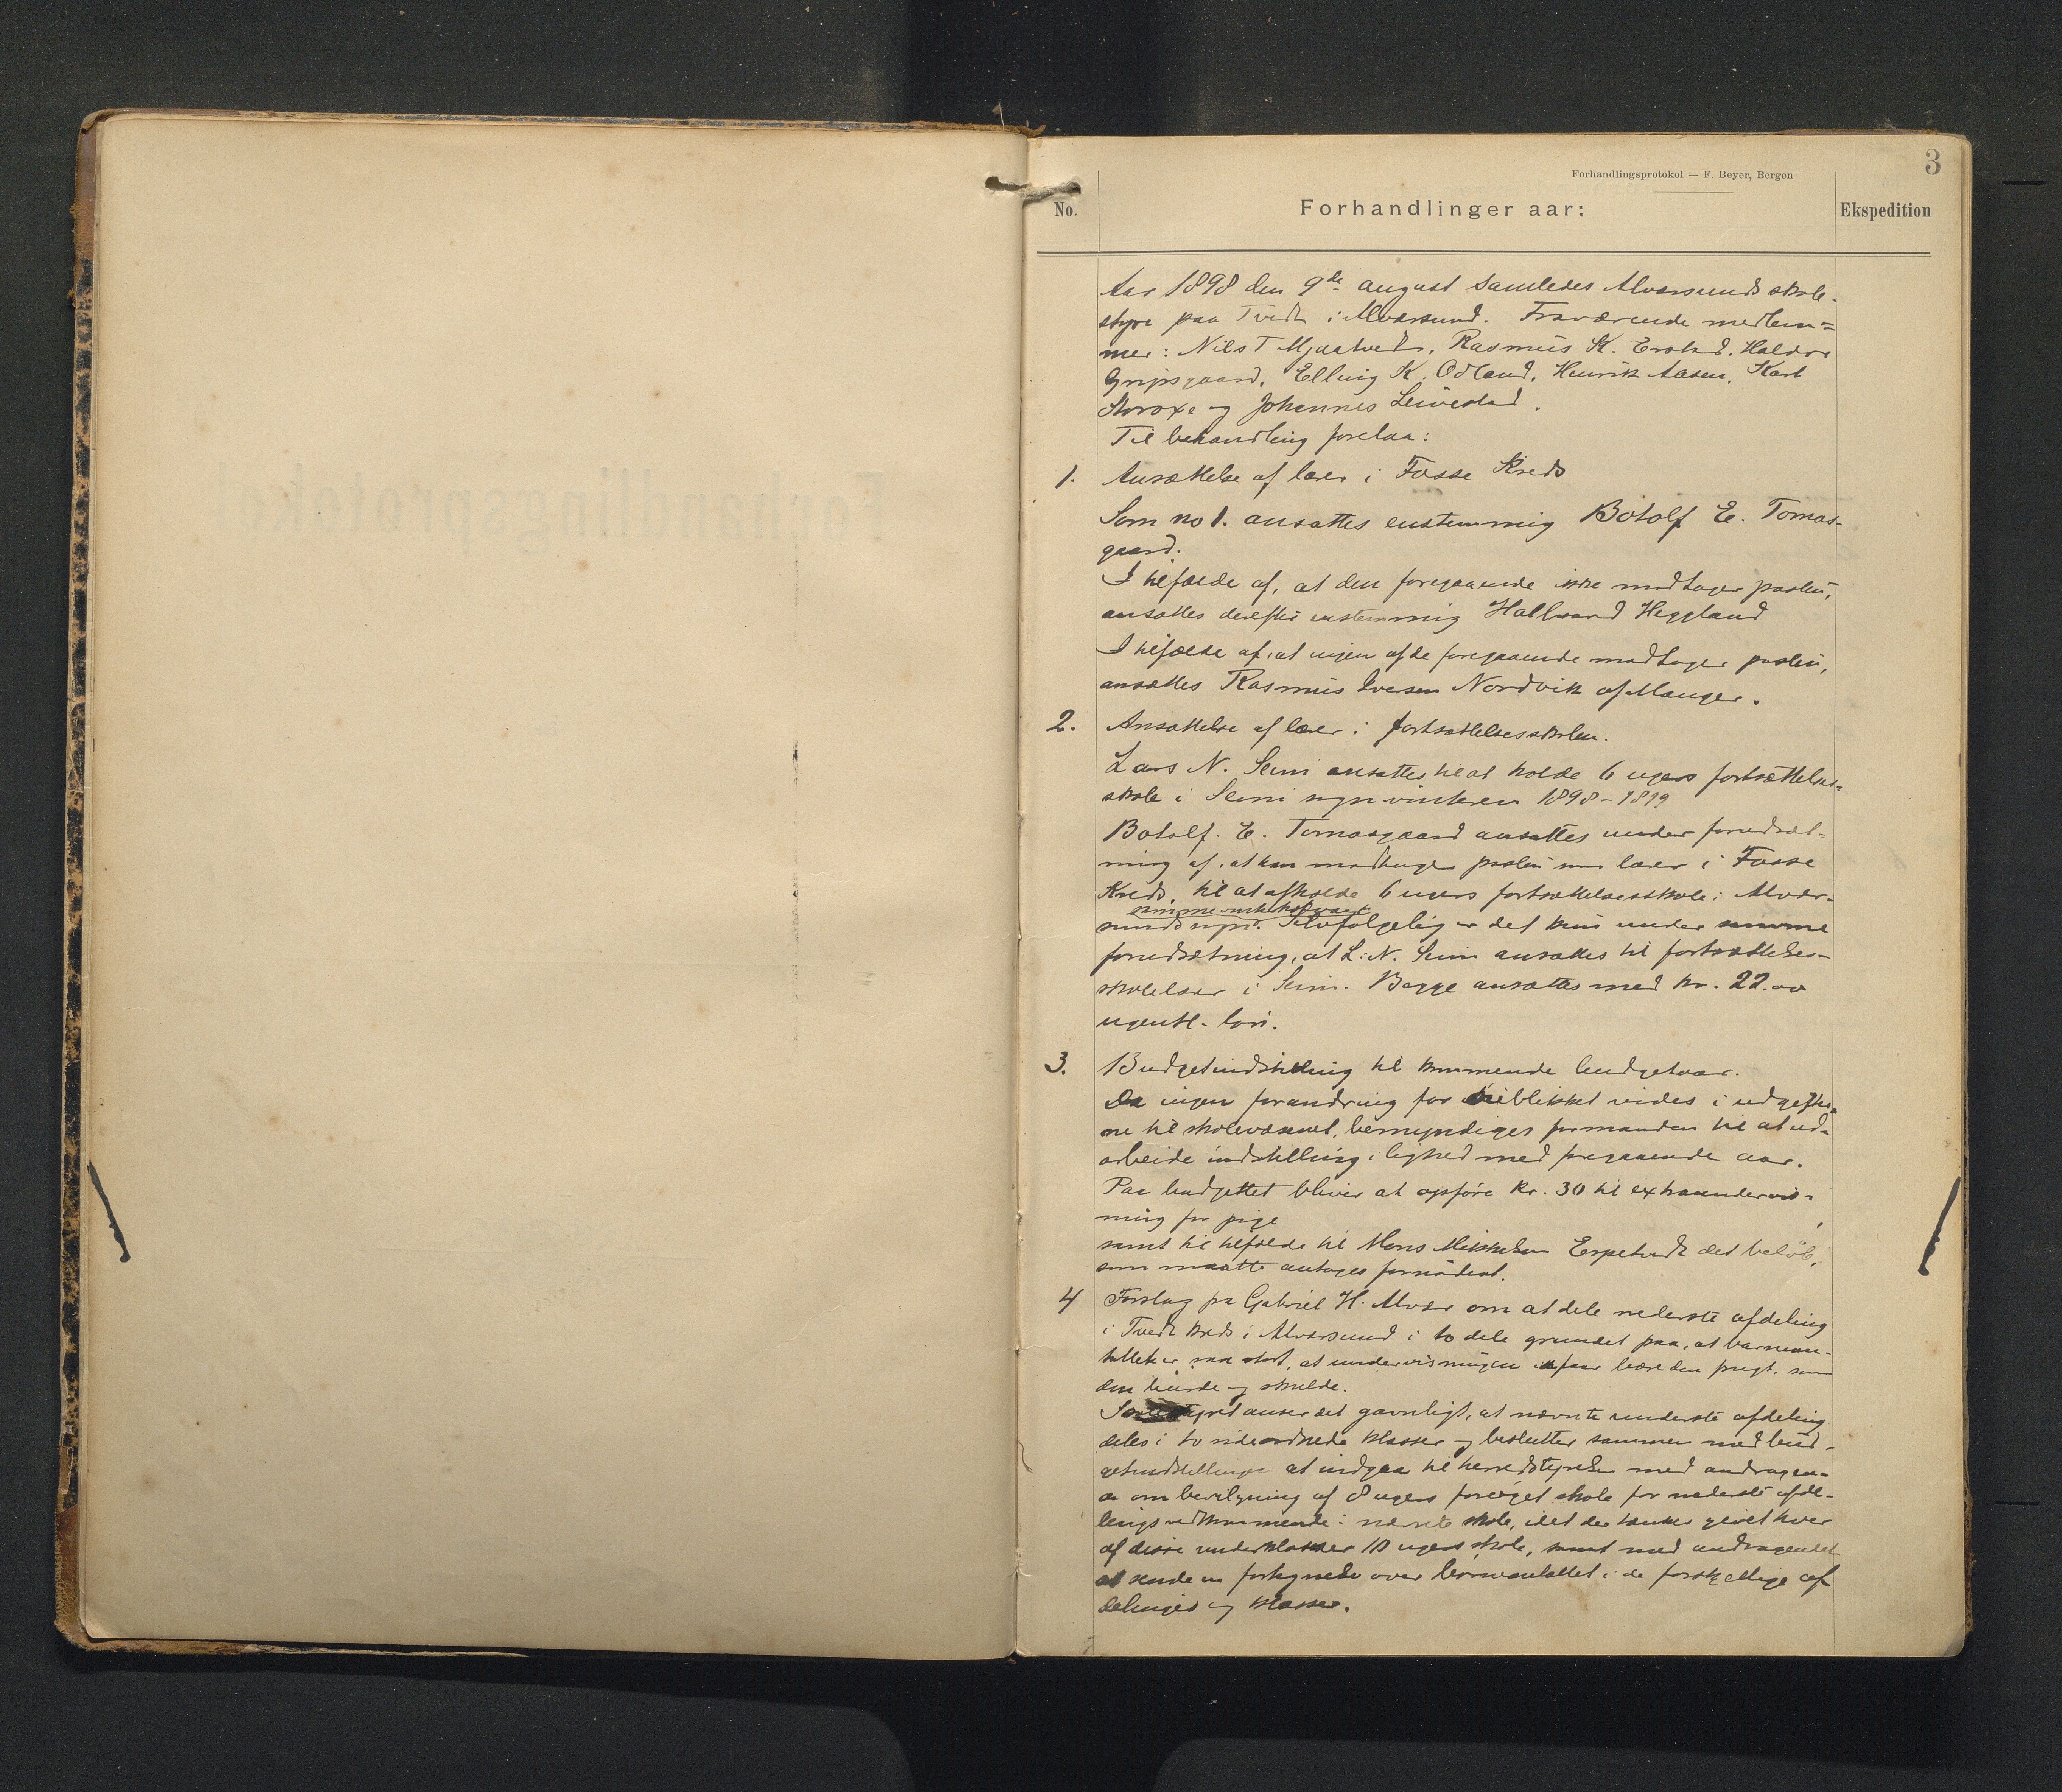 3
Forhandlingsprotokol — F. Beyer, Bergen
No.
Forhandlinger aar:
Ekspedition
Aar 1898 den 9de august samledes Alversunds skole-
styre paa Tvedt i Alversund. Fraværende medlem=
mer: Nils T Mjaatvedt, Rasmus K. Erstad, Haldor
Gripsgaard, Elling K. Odland, Henrik Aasen, Karl
og Johannes
Til behandling forelaa:
1. Ansættelse af lærer i Fosse Kreds
Som no 1. ansattes enstemmig Botolf E. Tomas-
gaard.
I tilfælde af, at den foregaaende ikke modtager posten,
ansattes derefter enstemmig Hallvard Heggland
I tilfælde af, at ingen af de foregaaende modtager posten,
ansættes Rasmus Iversen Nordvik af Manger.
2. Ansættelse af lærer i fortsættelsesskolen.
Lars N. Seim ansattes til at holde 6 ugers fortsættelses-
skole i Seim sogn vinteren 1898-1899
Botolf. E. Tomasgaard ansattes under forudsæt-
ning af, at han modtager posten som lærer i Fosse
Kreds, til at afholde 6 ugers fortsættelsesskole i Alver-
samme
sunds sogn. Selvfølgelig er det kun under samme
forudsætning, at L. N. Seim ansættes til fortsættelses-
skolelærer i Seim. Begge ansattes med kr. 22.00
ugentl. løn.
3. Budgetindstilling til kommende budgetaar.
Da ingen forandring for øieblikket vides i udgifter-
ne til skolevæsenet, bemyndiges formanden til at ud-
arbeide indstilling i lighed med foregaaende aar.
Paa budgettet bliver at opføre kr. 30 til extraundervis-
ning for pige
samt til tilfælde til Mons Mikkelsen Espetvedt det beløb,
som maatte antages fornødent.
4 Forslag fra Gabriel H. Alver om at dele nederste afdeling
i Tvedt kreds i Alversund i to dele grundet paa, at barnean-
tallet er saa stort, at undervisningen ei faar bære den frugt, som
den burde og skulde.
Skolestyret anser det gavnligt, at nævnte underste afdeling
deles i to sideordnede klasser og beslutter sammen med bud-
getindstillingen at indgaa til herredstyrelsen med andragen-
de om bevilgning af 8 ugers forøget skole for nederste afde-
lings vedkommende i nævnte skole, idet der tænkes givet hver
af disse underklasser 10 ugers skole, samt med andragendet
at sende en fortegnelse over børneantallet i de forskjellige af
delinger og klasser.